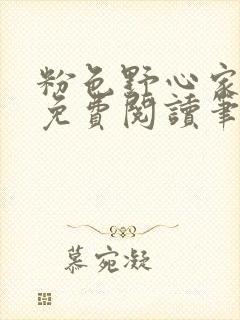 粉色野心家
免費閱讀筆
慕宛凝